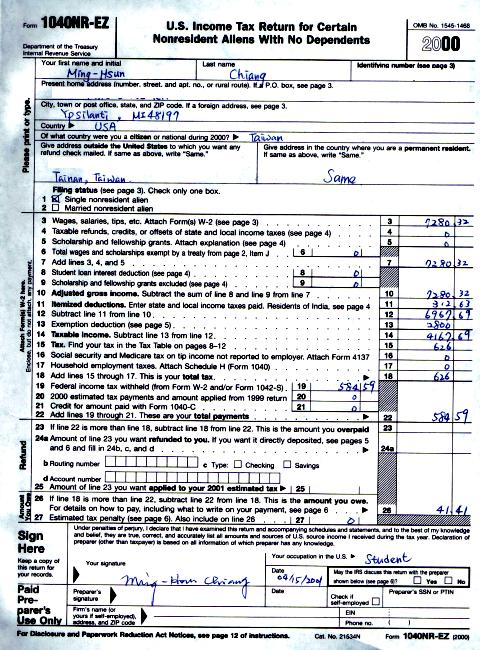 Form 1040NR-EZ
Department of the Treasury
Internal Revenue Service
U.S. Income Tax Return for Certain
Nonresident Aliens With No Dependents
OMB No. 1545-1468
2000
Please print or type.
Your first name and initial
Last name
Identifying number (see page 3)
Ming-Hsun
Chiang
Present home address (number, street, and apt. no., or rural route). If a P.O. box, see page 3.
City, town or post office, state, and ZIP code. If a foreign address, see page 3.
Ypsilanti, MI 48197
Country ▶ USA
Of what country were you a citizen or national during 2000? ▶ Taiwan
Give address outside the United States to which you want any refund check mailed. If same as above, write "Same."
Give address in the country where you are a permanent resident. If same as above, write "Same."
Tainan, Taiwan
Same
Filing status (see page 3). Check only one box.
1 ☒ Single nonresident alien
2 ☐ Married nonresident alien
Attach Form(s) W-2 here.
Enclose, but do not attach, any payment.
3 Wages, salaries, tips, etc. Attach Form(s) W-2 (see page 3) 3 7280.32
4 Taxable refunds, credits, or offsets of state and local income taxes (see page 4) 4 0
5 Scholarship and fellowship grants. Attach explanation (see page 4) 5 0
6 Total wages and scholarships exempt by a treaty from page 2, Item J 6 0
7 Add lines 3, 4, and 5 7 7280.32
8 Student loan interest deduction (see page 4) 8 0
9 Scholarship and fellowship grants excluded (see page 4) 9 0
10 Adjusted gross income. Subtract the sum of line 8 and line 9 from line 7 10 7280.32
11 Itemized deductions. Enter state and local income taxes paid. Residents of India, see page 4 11 312.63
12 Subtract line 11 from line 10 12 6967.69
13 Exemption deduction (see page 5) 13 2800
14 Taxable income. Subtract line 13 from line 12 14 4167.69
15 Tax. Find your tax in the Tax Table on pages 8–12 15 626
16 Social security and Medicare tax on tip income not reported to employer. Attach Form 4137 16 0
17 Household employment taxes. Attach Schedule H (Form 1040) 17 0
18 Add lines 15 through 17. This is your total tax. ▶ 18 626
19 Federal income tax withheld (from Form W-2 and/or Form 1042-S) 19 584 59
20 2000 estimated tax payments and amount applied from 1999 return 20 0
21 Credit for amount paid with Form 1040-C 21 0
22 Add lines 19 through 21. These are your total payments ▶ 22 584 59
Refund
23 If line 22 is more than line 18, subtract line 18 from line 22. This is the amount you overpaid 23
24a Amount of line 23 you want refunded to you. If you want it directly deposited, see pages 5 and 6 and fill in 24b, c, and d ▶ 24a
b Routing number
c Type: ☐ Checking ☐ Savings
d Account number
25 Amount of line 23 you want applied to your 2001 estimated tax ▶ 25
Amount You Owe
26 If line 18 is more than line 22, subtract line 22 from line 18. This is the amount you owe. For details on how to pay, including what to write on your payment, see page 6 ▶ 26 41.41
27 Estimated tax penalty (see page 6). Also include on line 26 27 0
Sign Here
Keep a copy of this return for your records.
Under penalties of perjury, I declare that I have examined this return and accompanying schedules and statements, and to the best of my knowledge and belief, they are true, correct, and accurately list all amounts and sources of U.S. source income I received during the tax year. Declaration of preparer (other than taxpayer) is based on all information of which preparer has any knowledge.
Your occupation in the U.S. ▶ Student
Your signature
Ming-Hsun Chiang
Date
04/15/2001
May the IRS discuss this return with the preparer shown below (see page 6)? ☐ Yes ☐ No
Paid Preparer's Use Only
Preparer's signature
Date
Check if self-employed ☐
Preparer's SSN or PTIN
Firm's name (or yours if self-employed), address, and ZIP code
EIN
Phone no. ( )
For Disclosure and Paperwork Reduction Act Notices, see page 12 of instructions.
Cat. No. 21534N
Form 1040NR-EZ (2000)